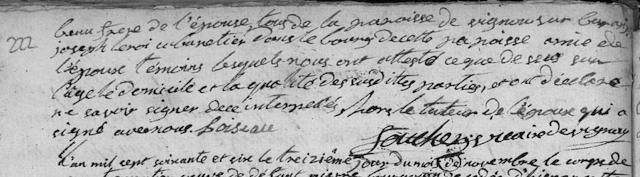 222
beau frere de l'épouse, tous de la paroisse de vignou sur
joseph leroi cabaretier dans le bourg de cette paroisse amie de
l'époux témoins lesquels nous ont attesté ce que de sus sur
l'age le domicile et la qualité des susdites parties, et ont déclaré
ne savoir signer de ce interpellés, hors le tuteur de l'époux qui a
signé avec nous. Loiseau
vicaire de vignou
L'an mil sept soixante et six le treizième jour du mois de novembre le corps de
veuve de défunt pierre